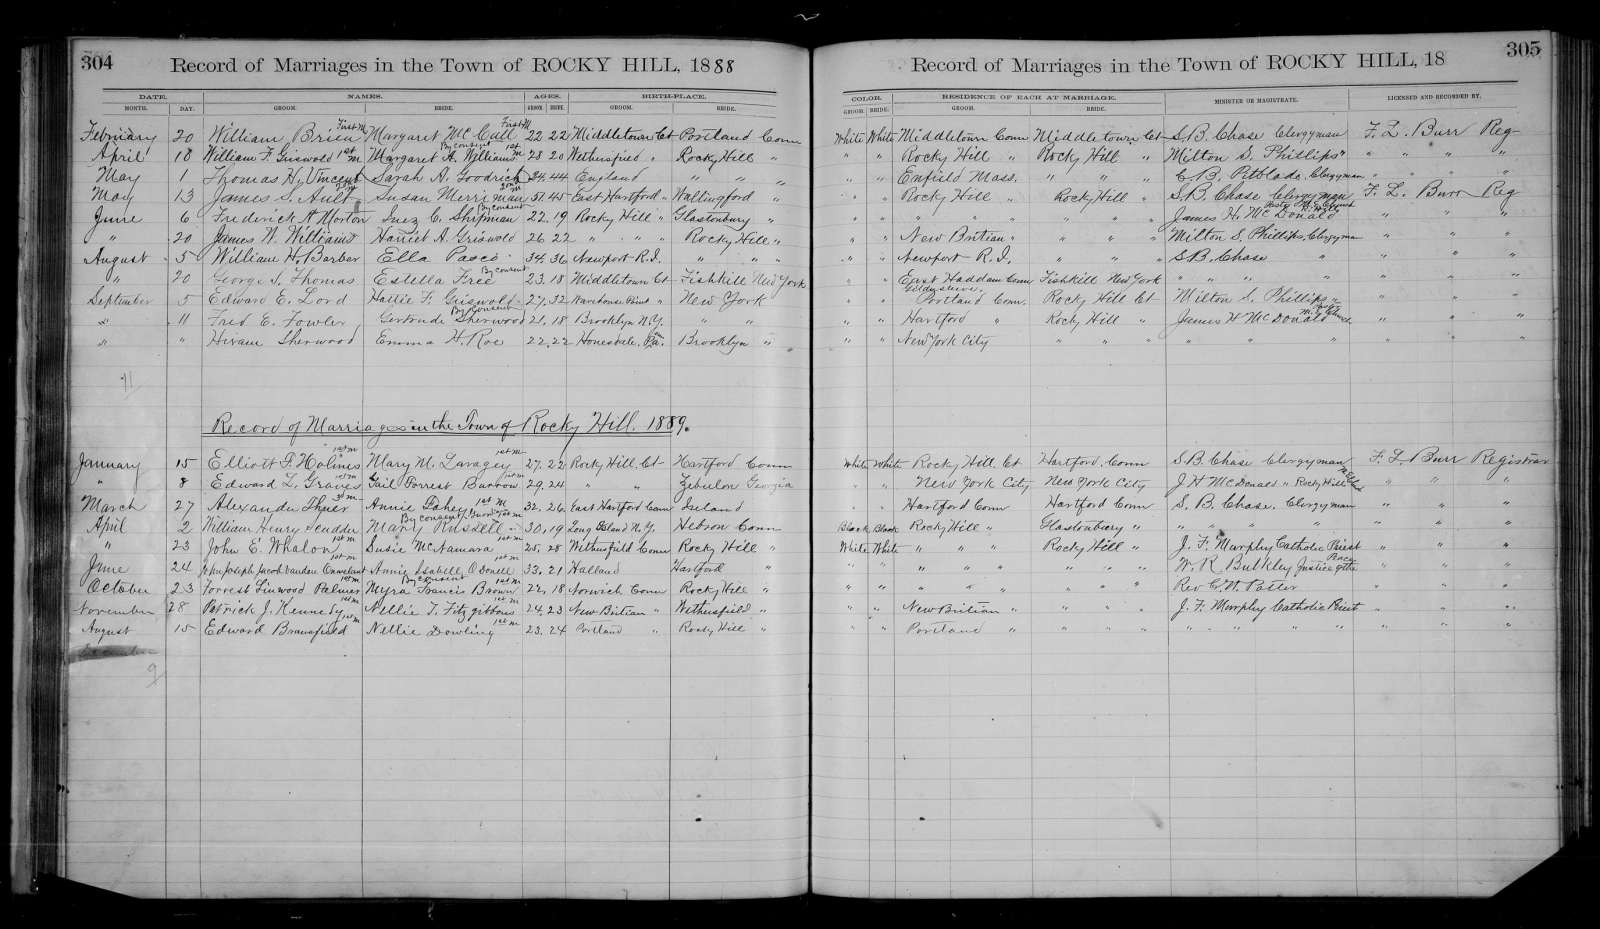 304
Record of Marriages in the Town of ROCKY HILL, 1888
DATE. NAMES. AGES. BIRTH-PLACE.
MONTH. DAY. GROOM. BRIDE. GROOM. BRIDE. GROOM. BRIDE.
February 20 William Brien First M Margaret McCall First M 22 22 Middletown Ct Portland Conn
April 18 William F. Griswold 1st M Margaret A. Williams By consent 1st M 28 20 Wethersfield " Rocky Hill "
May 1 Thomas H. Vincent Sarah A. Goodrich 24. 44 England " " "
May 13 James S. Ault 2nd M Susan Merriman 2nd M 51. 45 East Hartford " Wallingford "
June 6 Frederick A Morton Inez C. Shipman By consent 22. 19 Rocky Hill " Glastonbury "
" 20 James W. Williams Harriet A. Griswold 26 22 " " " Rocky Hill "
August 5 William H. Barber Ella Pasco 34. 36 Newport R.I. " " "
" 20 George S. Thomas Estella Free By consent 23. 18 Middletown Ct Fishkill New York
September 5 Edward E. Lord Hattie F. Griswold 27. 32 Warehouse Point " New York
" 11 Fred E. Fowler Gertrude Sherwood By consent 21. 18 Brooklyn N.Y. " "
" " Hiram Sherwood Emma H. Roe 22. 22 Honesdale, Pa. Brooklyn "
11
Record of Marriages in the Town of Rocky Hill. 1889.
January 15 Elliott F. Holmes 1st M Mary M. Lavagey 1st M 27. 22 Rocky Hill. Ct Hartford Conn
" 8 Edward L. Graves 1st M Gail Forrest Burrow 29. 24 " " Zebulon Georgia
March 27 Alexander Thuer 3rd M Annie Fahey 1st M 32. 26 East Hartford Conn Ireland
April 2 William Henry Scudder Mary Russell By consent 1st M 30, 19 Long Island N.Y. Hebron Conn
" 23 John E. Whalon 1st M Susie McNamara 1st M 25. 28 Wethersfield Conn Rocky Hill "
June 24 Joseph Jacob Vanden 1st M Annie Isabell Odonell 1st M 33. 21 Holland Hartford "
October 23 Forrest Linwood Palmer 1st M Myra Francis Brown By consent 1st M 22, 18 Norwich Conn Rocky Hill "
November 28 Patrick J. Kennedy 1st M Nellie T. Fitzgibbons 1st M 24, 23 New Britian " Wethersfield "
August 15 Edward Bransfield 1st M Nellie Dowling 1st M 23. 24 Portland " Rocky Hill "
9
305
Record of Marriages in the Town of ROCKY HILL, 18
COLOR. RESIDENCE OF EACH AT MARRIAGE. MINISTER OR MAGISTRATE. LICENSED AND RECORDED BY.
GROOM. BRIDE. GROOM. BRIDE.
White White Middletown Conn Middletown Ct S.B. Chase Clergyman F. L. Burr Reg
" " Rocky Hill " Rocky Hill " Milton S. Phillips " " " " "
" " Enfield Mass. " " " C. B. Pitblado. Clergyman " " "
" " Rocky Hill " Rocky Hill " S.B. Chase Clergyman F. L. Burr Reg
" " " " " " " " James H. McDonald " " "
" " New Britian " " " " Milton S. Phillips. Clergyman " " "
" " Newport R.I. " " " S.B. Chase " " " "
" " East Haddam Conn Fishkill New York " " " " " "
" " Gildersleeve. Portland Conn. Rocky Hill Ct Milton S. Phillips " " " "
" " Hartford " Rocky Hill " James H McDonald " " "
" " New York City " " " " " " " " "
White White Rocky Hill. Ct Hartford. Conn S.B. Chase Clergyman F. L. Burr Registrar
" " New York City New York City J H McDonald " Rocky Hill " " "
" Hartford Conn Hartford Conn S. B. Chase. Clergyman " " "
Black Black Rocky Hill " Glastonbury " " " " " " " "
White White " " " Rocky Hill " J. F. Murphy Catholic Priest " " "
" " " " " " " " W. R. Bulkley Justice of the Peace " " "
" " " " " " " " Rev C. W. " " "
" " New Britian " " " " J. F. Murphy Catholic Priest " " "
" " Portland " " " " " " " " " " "